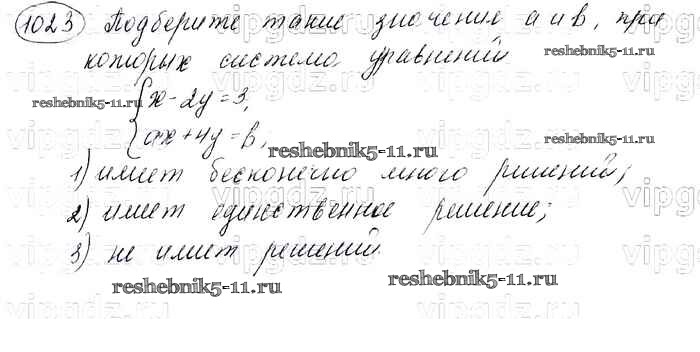 1023 Подберите такие значения а и в, при
которых система уравнений
reshebnik5-11.ru
reshebnik5-11.ru
{x - 2y = 3,
ax + 4y = b,
reshebnik5-11.ru
reshebnik5-11.ru
1) имеет бесконечно много решений;
2) имеет единственное решение;
3) не имеет решений.
reshebnik5-11.ru
reshebnik5-11.ru
vipgdz.ru